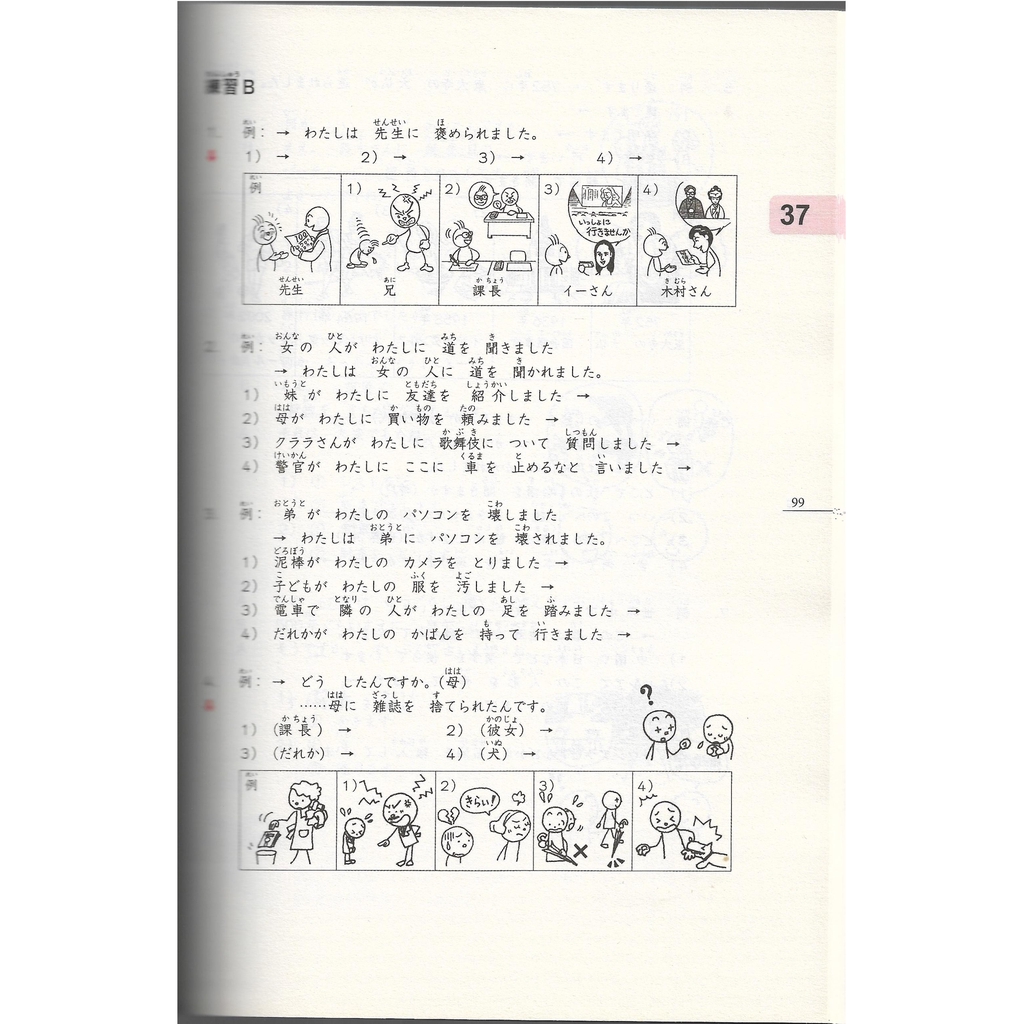 練習B
1. 例： → わたしは 先生に 褒められました。
1） → 2） → 3） → 4） →
例 1） 2） 3） 4）
いっしょに
行きませんか
先生 兄 課長 イーさん 木村さん
2. 例： 女の 人が わたしに 道を 聞きました
→ わたしは 女の 人に 道を 聞かれました。
1） 妹が わたしに 友達を 紹介しました →
2） 母が わたしに 買い物を 頼みました →
3） クララさんが わたしに 歌舞伎に ついて 質問しました →
4） 警官が わたしに ここに 車を 止めるなと 言いました →
3. 例： 弟が わたしの パソコンを 壊しました
→ わたしは 弟に パソコンを 壊されました。
1） 泥棒が わたしの カメラを とりました →
2） 子どもが わたしの 服を 汚しました →
3） 電車で 隣の 人が わたしの 足を 踏みました →
4） だれかが わたしの かばんを 持って 行きました →
4. 例： → どう したんですか。（母）
……母に 雑誌を 捨てられたんです。
1）（課長） → 2）（彼女） →
3）（だれか） → 4）（犬） →
例 1） 2） 3） 4）
きらい！
37
99